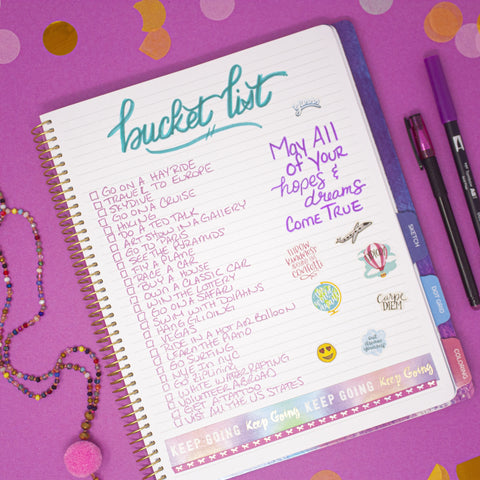 bucket list
GO ON A HAYRIDE
TRAVEL TO EUROPE
SKYDIVE
GO ON A CRUISE
HIKING
DO A TED TALK
ART SHOWN IN A GALLERY
GO TO
SEE THE PYRAMIDS
FLY A PLANE
RACE A CAR
BUY A HOUSE
OWN A CLASSIC CAR
WIN THE LOTTERY
GO ON A SAFARI
SWIM WITH DOLPHINS
PARAGLIDING
VEGAS
RIDE IN A HOT AIR BALLOON
LEARN THE PIANO
GO SURFING
LIVE IN NYC
GO
WHITE WATER RAFTING
VOLUNTEER ABROAD
GET A TATTOO
VISIT ALL THE US STATES
May All
of Your
hopes &
dreams
COME TRUE
THROW
KINDNESS
AROUND LIKE
confetti
CARPE
DIEM
KEEP GOING Keep Going KEEP GOING Keep Going
SKETCH
DOT GRID
COLORING